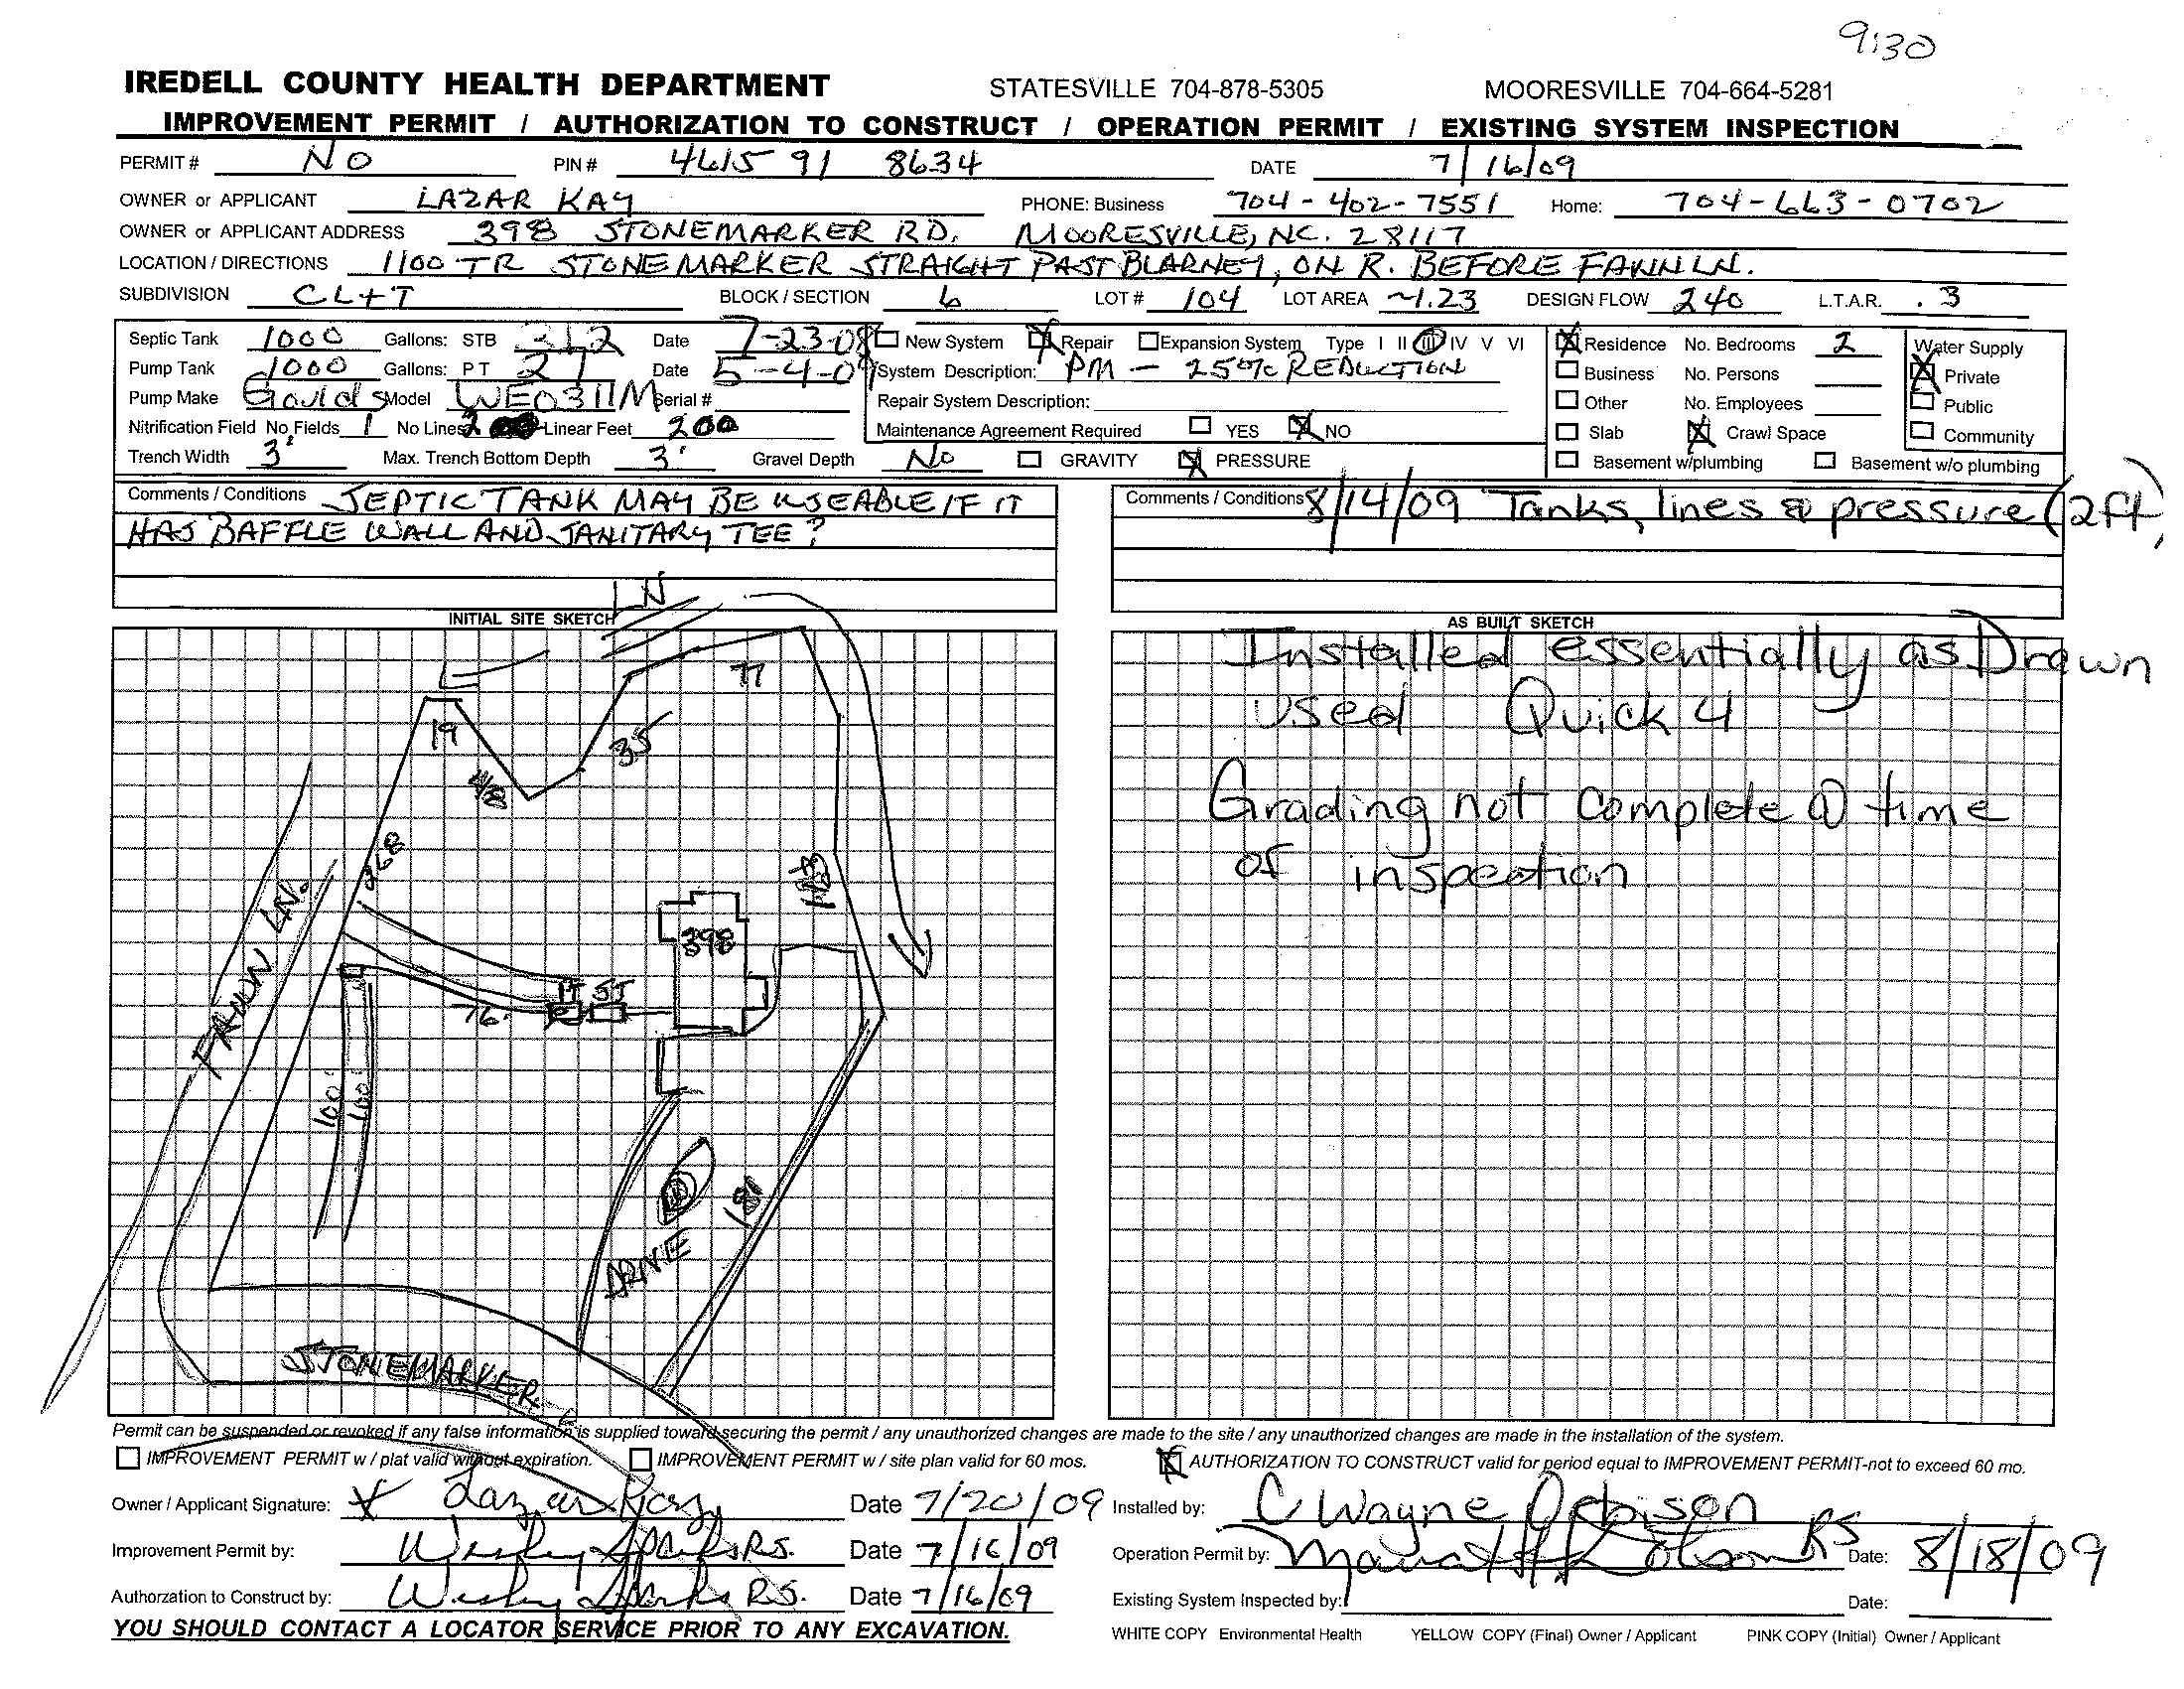 9:30
IREDELL COUNTY HEALTH DEPARTMENT STATESVILLE 704-878-5305 MOORESVILLE 704-664-5281
IMPROVEMENT PERMIT / AUTHORIZATION TO CONSTRUCT / OPERATION PERMIT / EXISTING SYSTEM INSPECTION
PERMIT # NO PIN # 4615 91 8634 DATE 7/16/09
OWNER or APPLICANT LAZAR KAY PHONE: Business 704-402-7551 Home: 704-663-0702
OWNER or APPLICANT ADDRESS 398 STONEMARKER RD. MOORESVILLE, NC. 28117
LOCATION / DIRECTIONS 1100 TR STONEMARKER STRAIGHT PAST BLARNEY, ON R. BEFORE FAWN LN.
SUBDIVISION CL+T BLOCK / SECTION 6 LOT # 104 LOT AREA ~1.23 DESIGN FLOW 240 L.T.A.R. .3
Septic Tank 1000 Gallons: STB 312 Date 7-23-08 New System Repair Expansion System Type I II III IV V VI Residence No. Bedrooms 2 Water Supply
Pump Tank 1000 Gallons: PT 27 Date 5-4-09 System Description: PM - 25% REDUCTION Business No. Persons Private
Pump Make Goulds Model WE0311M Serial # Repair System Description: Other No. Employees Public
Nitrification Field No Fields 1 No Lines 2 Linear Feet 200 Maintenance Agreement Required YES NO Slab Crawl Space Community
Trench Width 3' Max. Trench Bottom Depth 3' Gravel Depth No GRAVITY PRESSURE Basement w/plumbing Basement w/o plumbing
Comments / Conditions SEPTIC TANK MAY BE USEABLE IF IT
HAS BAFFLE WALL AND SANITARY TEE?
Comments / Conditions 8/14/09 Tanks, lines @ pressure (2ft)
LN
INITIAL SITE SKETCH
77
19
35
48
368
398
FAWN LN.
PT ST
76'
100'
100'
181
DRIVE
STONEMARKER
AS BUILT SKETCH
Installed essentially as Drawn
Used Quick 4
Grading not complete @ time
of inspection
Permit can be suspended or revoked if any false information is supplied toward securing the permit / any unauthorized changes are made to the site / any unauthorized changes are made in the installation of the system.
IMPROVEMENT PERMIT w / plat valid without expiration. IMPROVEMENT PERMIT w / site plan valid for 60 mos. AUTHORIZATION TO CONSTRUCT valid for period equal to IMPROVEMENT PERMIT-not to exceed 60 mo.
Owner / Applicant Signature: X Lazar Kay Date 7/20/09 Installed by: C Wayne Orbison
Improvement Permit by: Wesley Sparks R.S. Date 7/16/09 Operation Permit by: RS Date: 8/18/09
Authorzation to Construct by: Wesley Sparks R.S. Date 7/16/09 Existing System Inspected by: Date:
YOU SHOULD CONTACT A LOCATOR SERVICE PRIOR TO ANY EXCAVATION. WHITE COPY Environmental Health YELLOW COPY (Final) Owner / Applicant PINK COPY (Initial) Owner / Applicant